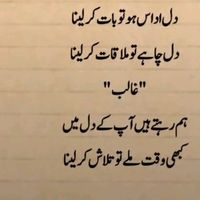 دل اداس ہو تو بات کر لینا
دل چاہے تو ملاقات کر لینا
"غالب"
ہم رہتے ہیں آپ کے دل میں
کبھی وقت ملے تو تلاش کر لینا